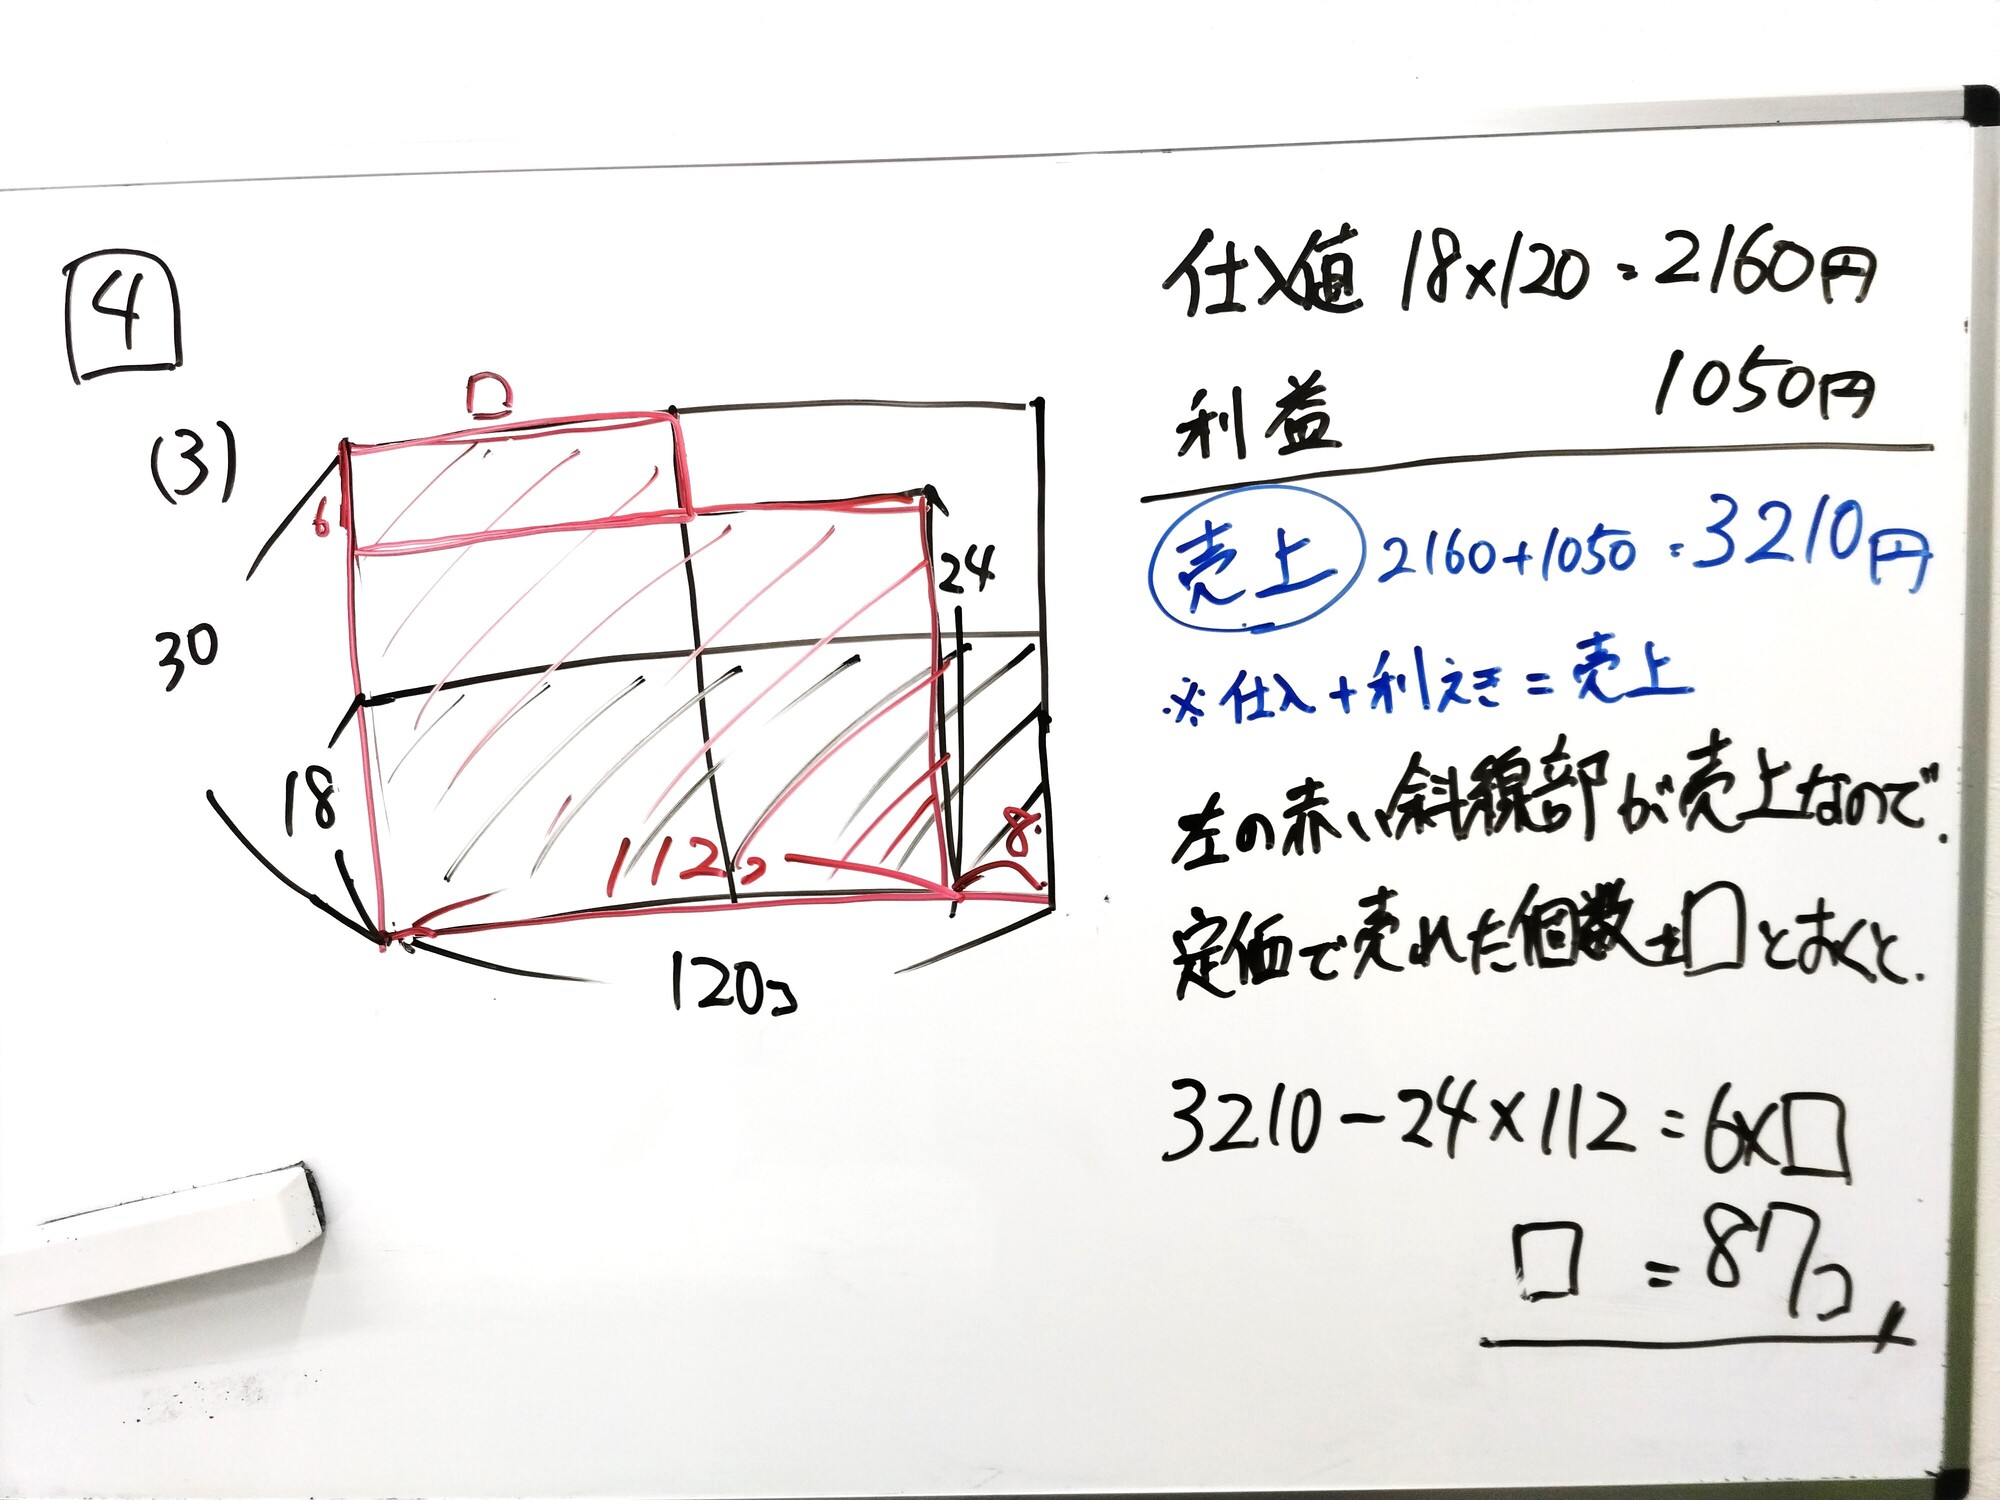 4
(3)
□
6
30
18
24
112コ
8コ
120コ
仕入値 18×120=2160円
利益 1050円
売上 2160+1050=3210円
※仕入+利えき=売上
左の赤い斜線部が売上なので、
定価で売れた個数を□とおくと、
3210-24×112=6×□
□=87コ